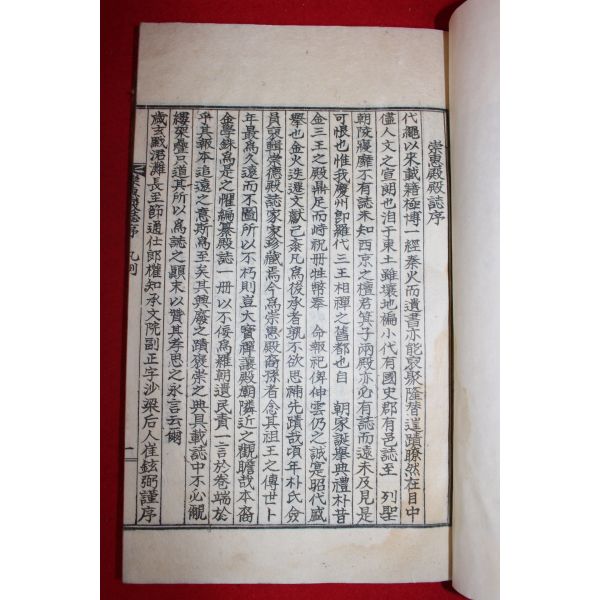 崇惠殿殿誌序
代繩以來載籍極博一經秦火而遺書亦能裒聚隆替遑蹟瞭然在目中
僅人文之宣朗也洎于東土雖壤地褊小代有國史郡有邑誌至 列聖
朝陵寢靡不有誌未知西京之檀君箕子兩殿亦必有誌而遠未及見是
可恨也惟我慶州卽羅代三王相禪之舊都也自 朝家誕擧典禮朴昔
金三王之殿鼎足而峙祝冊牲幣奉 命報祀俾伸雲仍之誠寔昭代盛
擧也金火迭遷文獻已泰凡爲後承者孰不欲思補先蹟哉頃年朴氏僉
員裒輯崇德殿誌家家珍藏焉今爲崇惠殿裔孫者念其祖王之傳世卜
年最爲久遠而不圖所以不朽則豈大寶禪讓殿廟隣近之觀瞻哉本裔
金學銖爲是之懼編纂殿誌一冊以不佞爲羅朝遺民責一言於卷端於
乎其報本追遠之意斯爲至矣其興廢之蹟褒崇之典具載誌中不必覼
縷架疊只道其所以爲誌之顚末以贊其孝思之永言云爾
歲玄黓涒灘長至節通仕郞權知承文院副正字沙梁后人崔鉉弼謹序
崇惠殿誌序 凡例
一